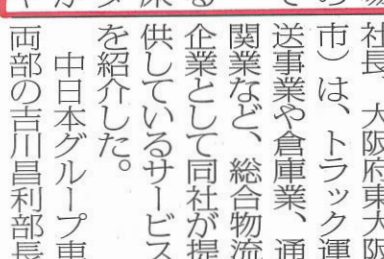 社長 大阪府東大阪
市）は、トラック運
送事業や倉庫業、通
関業など、総合物流
企業として同社が提
供しているサービス
を紹介した。
中日本グループ車
両部の吉川昌利部長